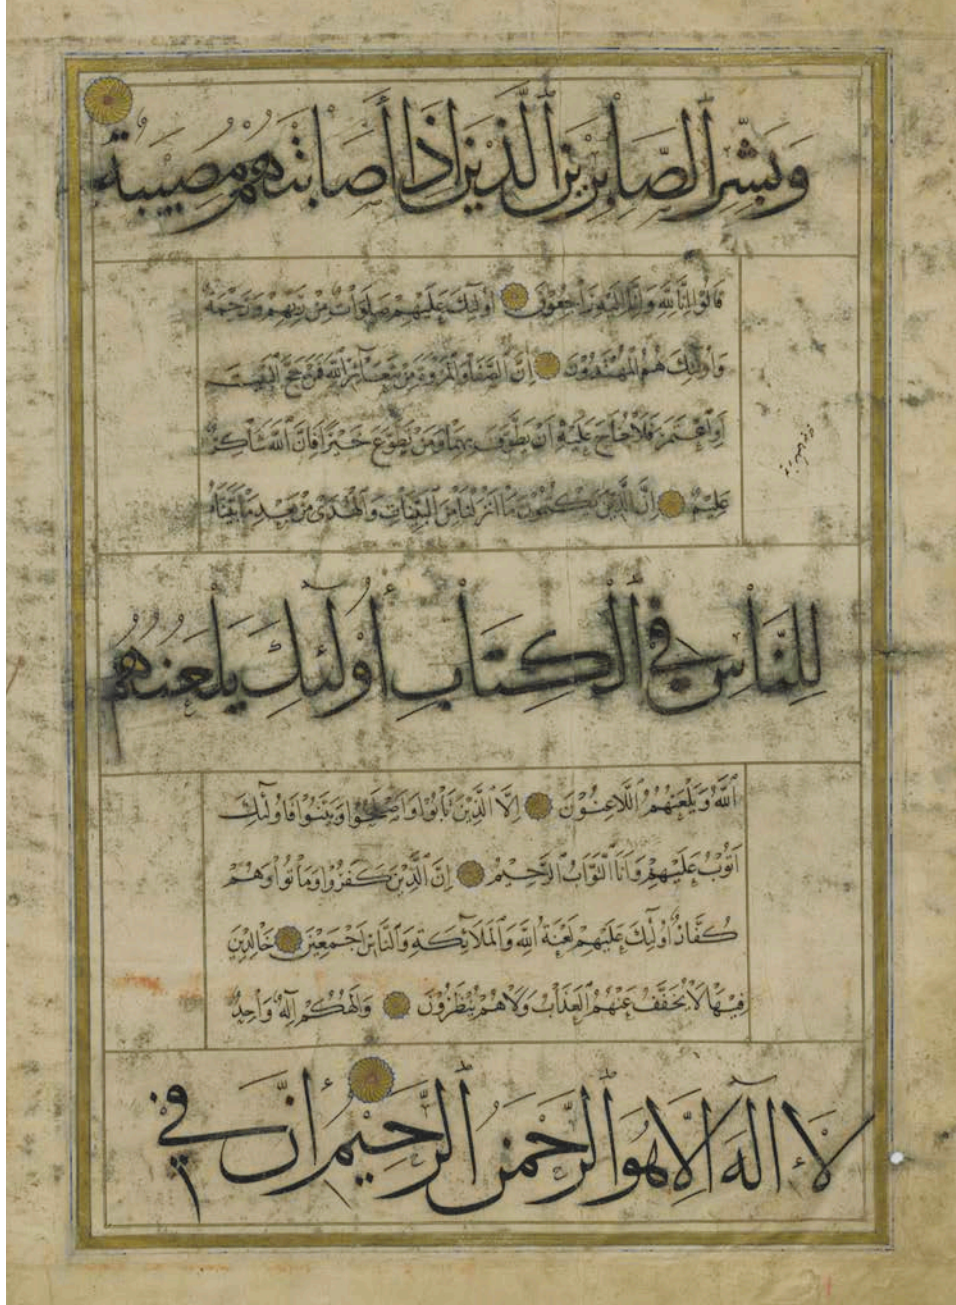 وَبَشِّرِ الصَّابِرِينَ الَّذِينَ إِذَا أَصَابَتْهُمْ مُصِيبَةٌ
قَالُوا إِنَّا لِلَّهِ وَإِنَّا إِلَيْهِ رَاجِعُونَ أُولَٰئِكَ عَلَيْهِمْ صَلَوَاتٌ مِنْ رَبِّهِمْ وَرَحْمَةٌ
وَأُولَٰئِكَ هُمُ الْمُهْتَدُونَ إِنَّ الصَّفَا وَالْمَرْوَةَ مِنْ شَعَائِرِ اللَّهِ فَمَنْ حَجَّ الْبَيْتَ
أَوِ اعْتَمَرَ فَلَا جُنَاحَ عَلَيْهِ أَنْ يَطَّوَّفَ بِهِمَا وَمَنْ تَطَوَّعَ خَيْرًا فَإِنَّ اللَّهَ شَاكِرٌ
عَلِيمٌ إِنَّ الَّذِينَ يَكْتُمُونَ مَا أَنْزَلْنَا مِنَ الْبَيِّنَاتِ وَالْهُدَىٰ مِنْ بَعْدِ مَا بَيَّنَّاهُ
لِلنَّاسِ فِي الْكِتَابِ أُولَٰئِكَ يَلْعَنُهُمُ
اللَّهُ وَيَلْعَنُهُمُ اللَّاعِنُونَ إِلَّا الَّذِينَ تَابُوا وَأَصْلَحُوا وَبَيَّنُوا فَأُولَٰئِكَ
أَتُوبُ عَلَيْهِمْ وَأَنَا التَّوَّابُ الرَّحِيمُ إِنَّ الَّذِينَ كَفَرُوا وَمَاتُوا وَهُمْ
كُفَّارٌ أُولَٰئِكَ عَلَيْهِمْ لَعْنَةُ اللَّهِ وَالْمَلَائِكَةِ وَالنَّاسِ أَجْمَعِينَ خَالِدِينَ
فِيهَا لَا يُخَفَّفُ عَنْهُمُ الْعَذَابُ وَلَا هُمْ يُنْظَرُونَ وَإِلَٰهُكُمْ إِلَٰهٌ وَاحِدٌ
لَا إِلَٰهَ إِلَّا هُوَ الرَّحْمَٰنُ الرَّحِيمُ إِنَّ فِي